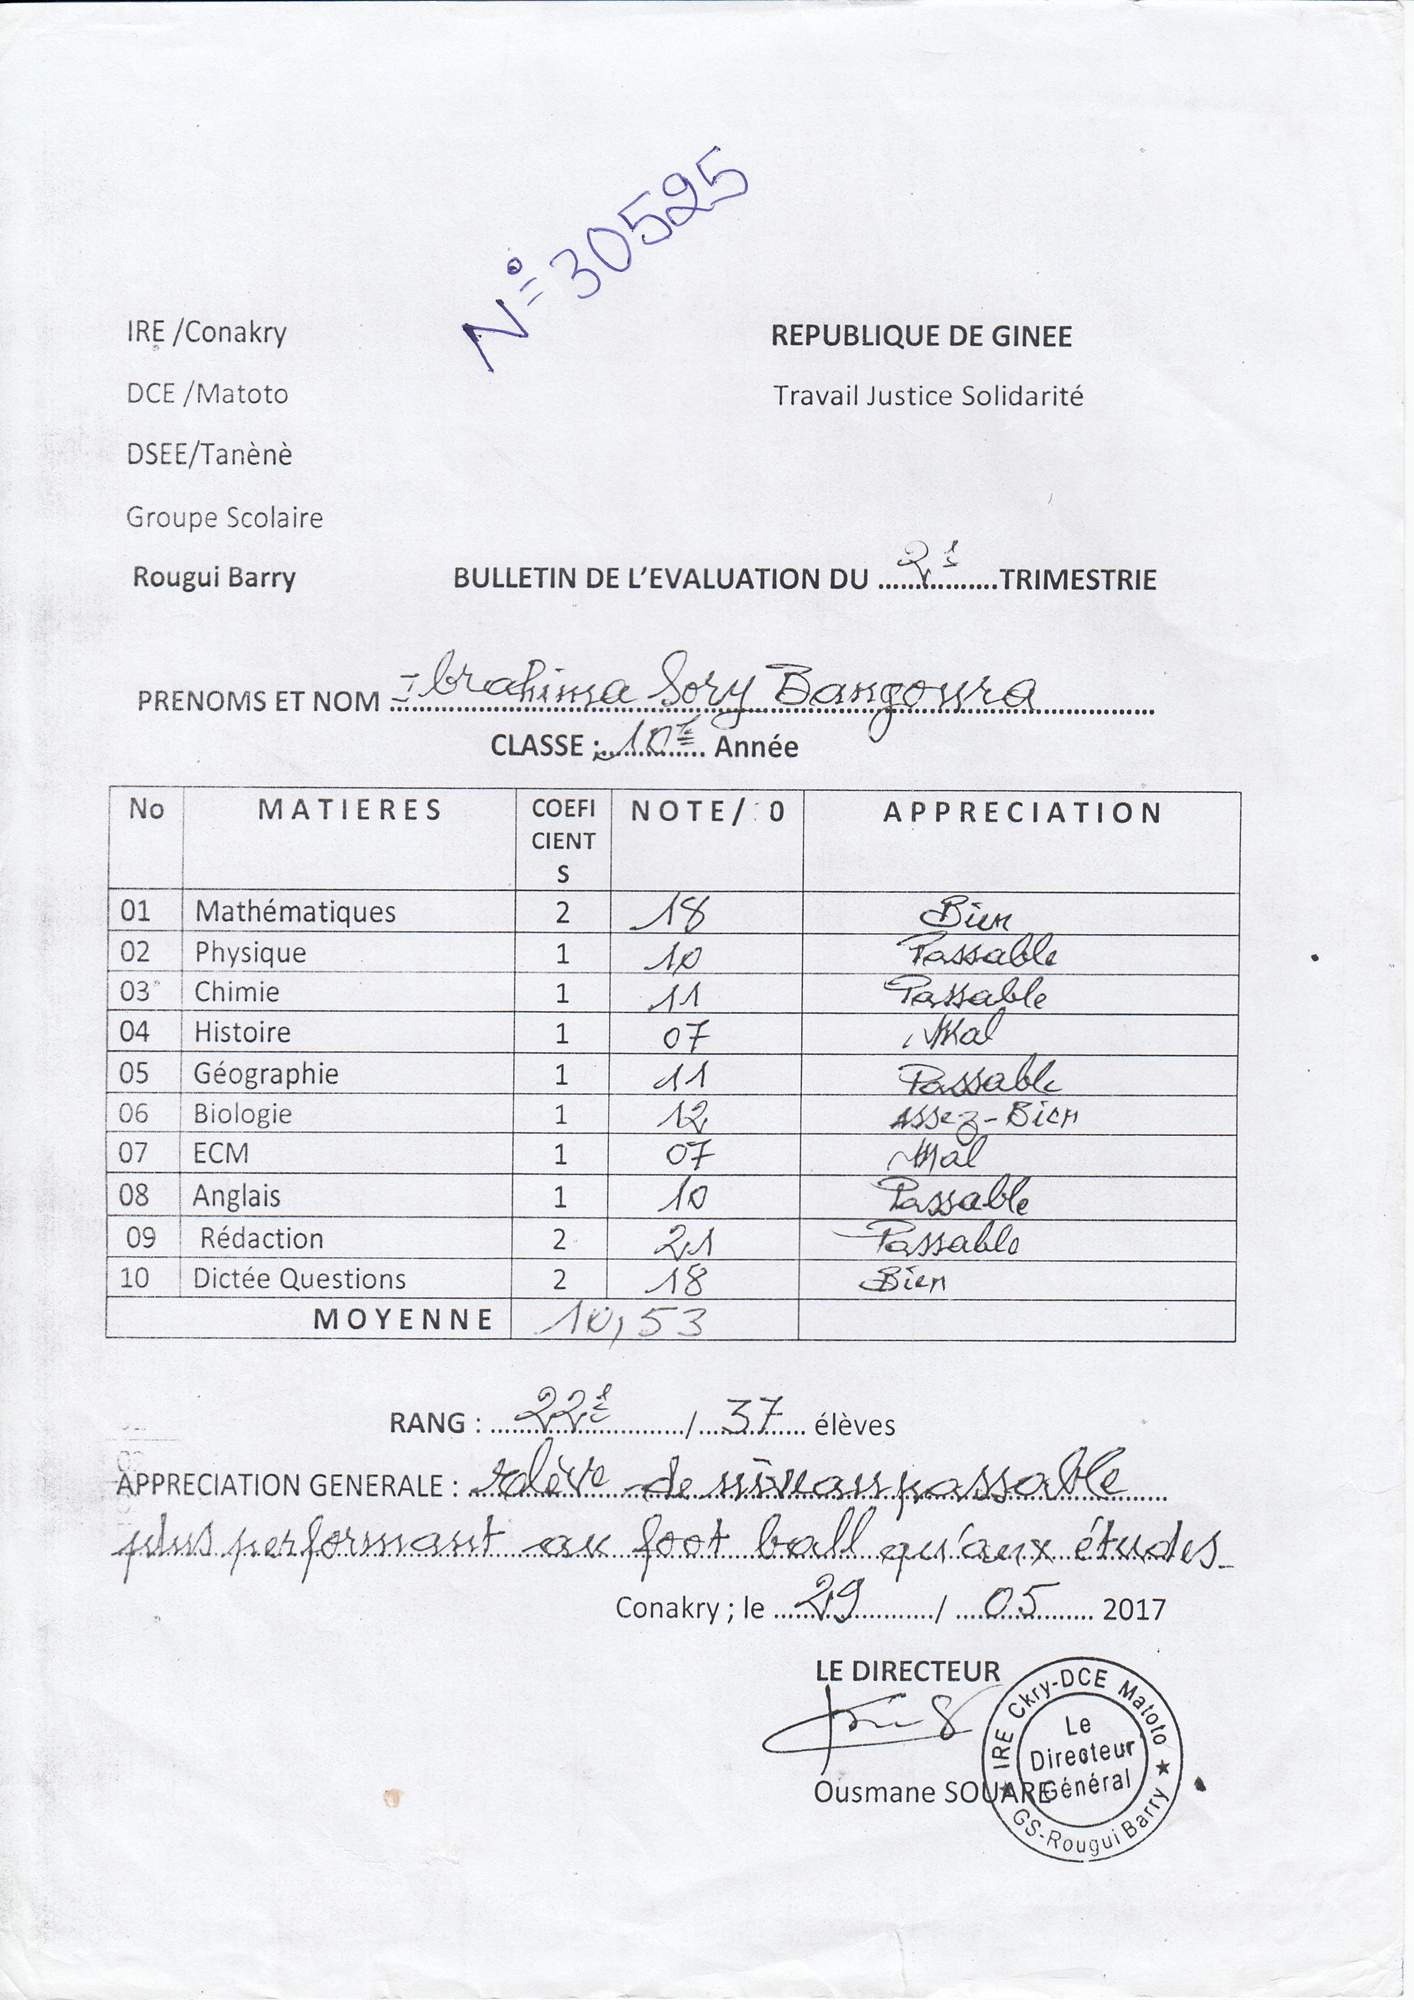 N°=30525
IRE /Conakry
REPUBLIQUE DE GINEE
DCE /Matoto
Travail Justice Solidarité
DSEE/Tanènè
Groupe Scolaire
Rougui Barry
BULLETIN DE L'EVALUATION DU ...2è...TRIMESTRIE
PRENOMS ET NOM ...Ibrahima Sory Bangoura...
CLASSE :...10è... Année
No MATIERES COEFI CIENT S NOTE/ 0 APPRECIATION
01 Mathématiques 2 18 Bien
02 Physique 1 10 Passable
03 Chimie 1 11 Passable
04 Histoire 1 07 Mal
05 Géographie 1 11 Passable
06 Biologie 1 12 Assez-Bien
07 ECM 1 07 Mal
08 Anglais 1 10 Passable
09 Rédaction 2 21 Passable
10 Dictée Questions 2 18 Bien
MOYENNE 10,53
RANG : ...22è.../...37... élèves
APPRECIATION GENERALE : élève de niveau passable
plus performant au foot ball qu'aux études
Conakry ; le ...29.../ ...05... 2017
LE DIRECTEUR
Ousmane SOUARE
IRE Ckry-DCE Matoto
Le Directeur Général
GS-Rougui Barry